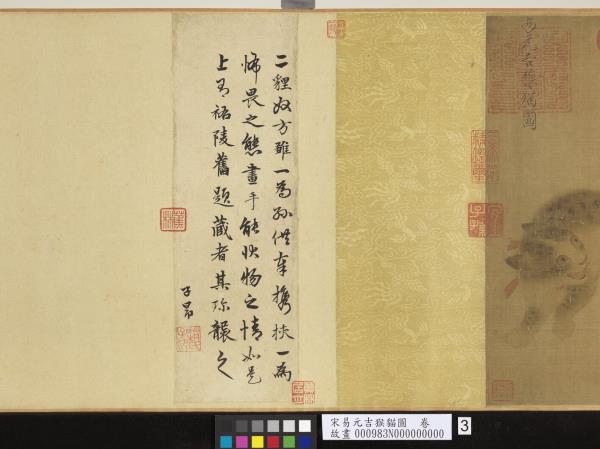 易元吉猴猫圖
二貍奴方雛一為孫供奉攜挾一為
怖畏之態畫手能狀物之情如是
上有祐陵舊題藏者其珍襲之
子昂
宋易元吉猴貓圖 卷
故畫 000983N000000000
3